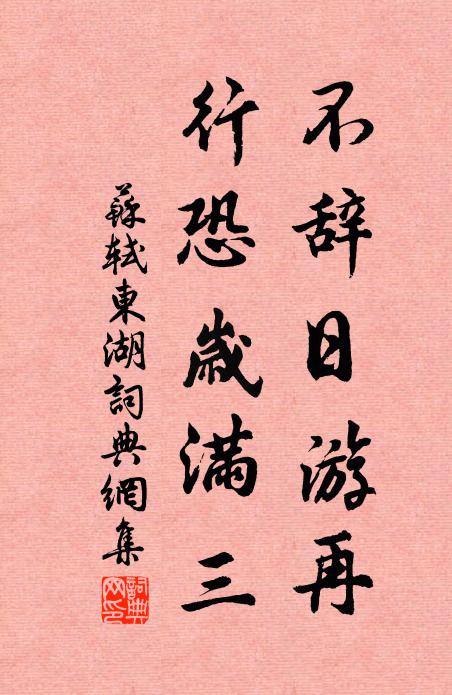 不辞日游再
行恐歳满三
蘇軾東湖詞典網集
詞典網印